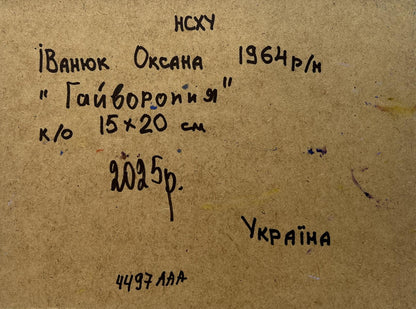 НСХУ
ІВАНЮК ОКСАНА 1964 р/н
"Гайворопия"
к/о 15×20 см
2025р.
УКРАЇНА
4497ААА